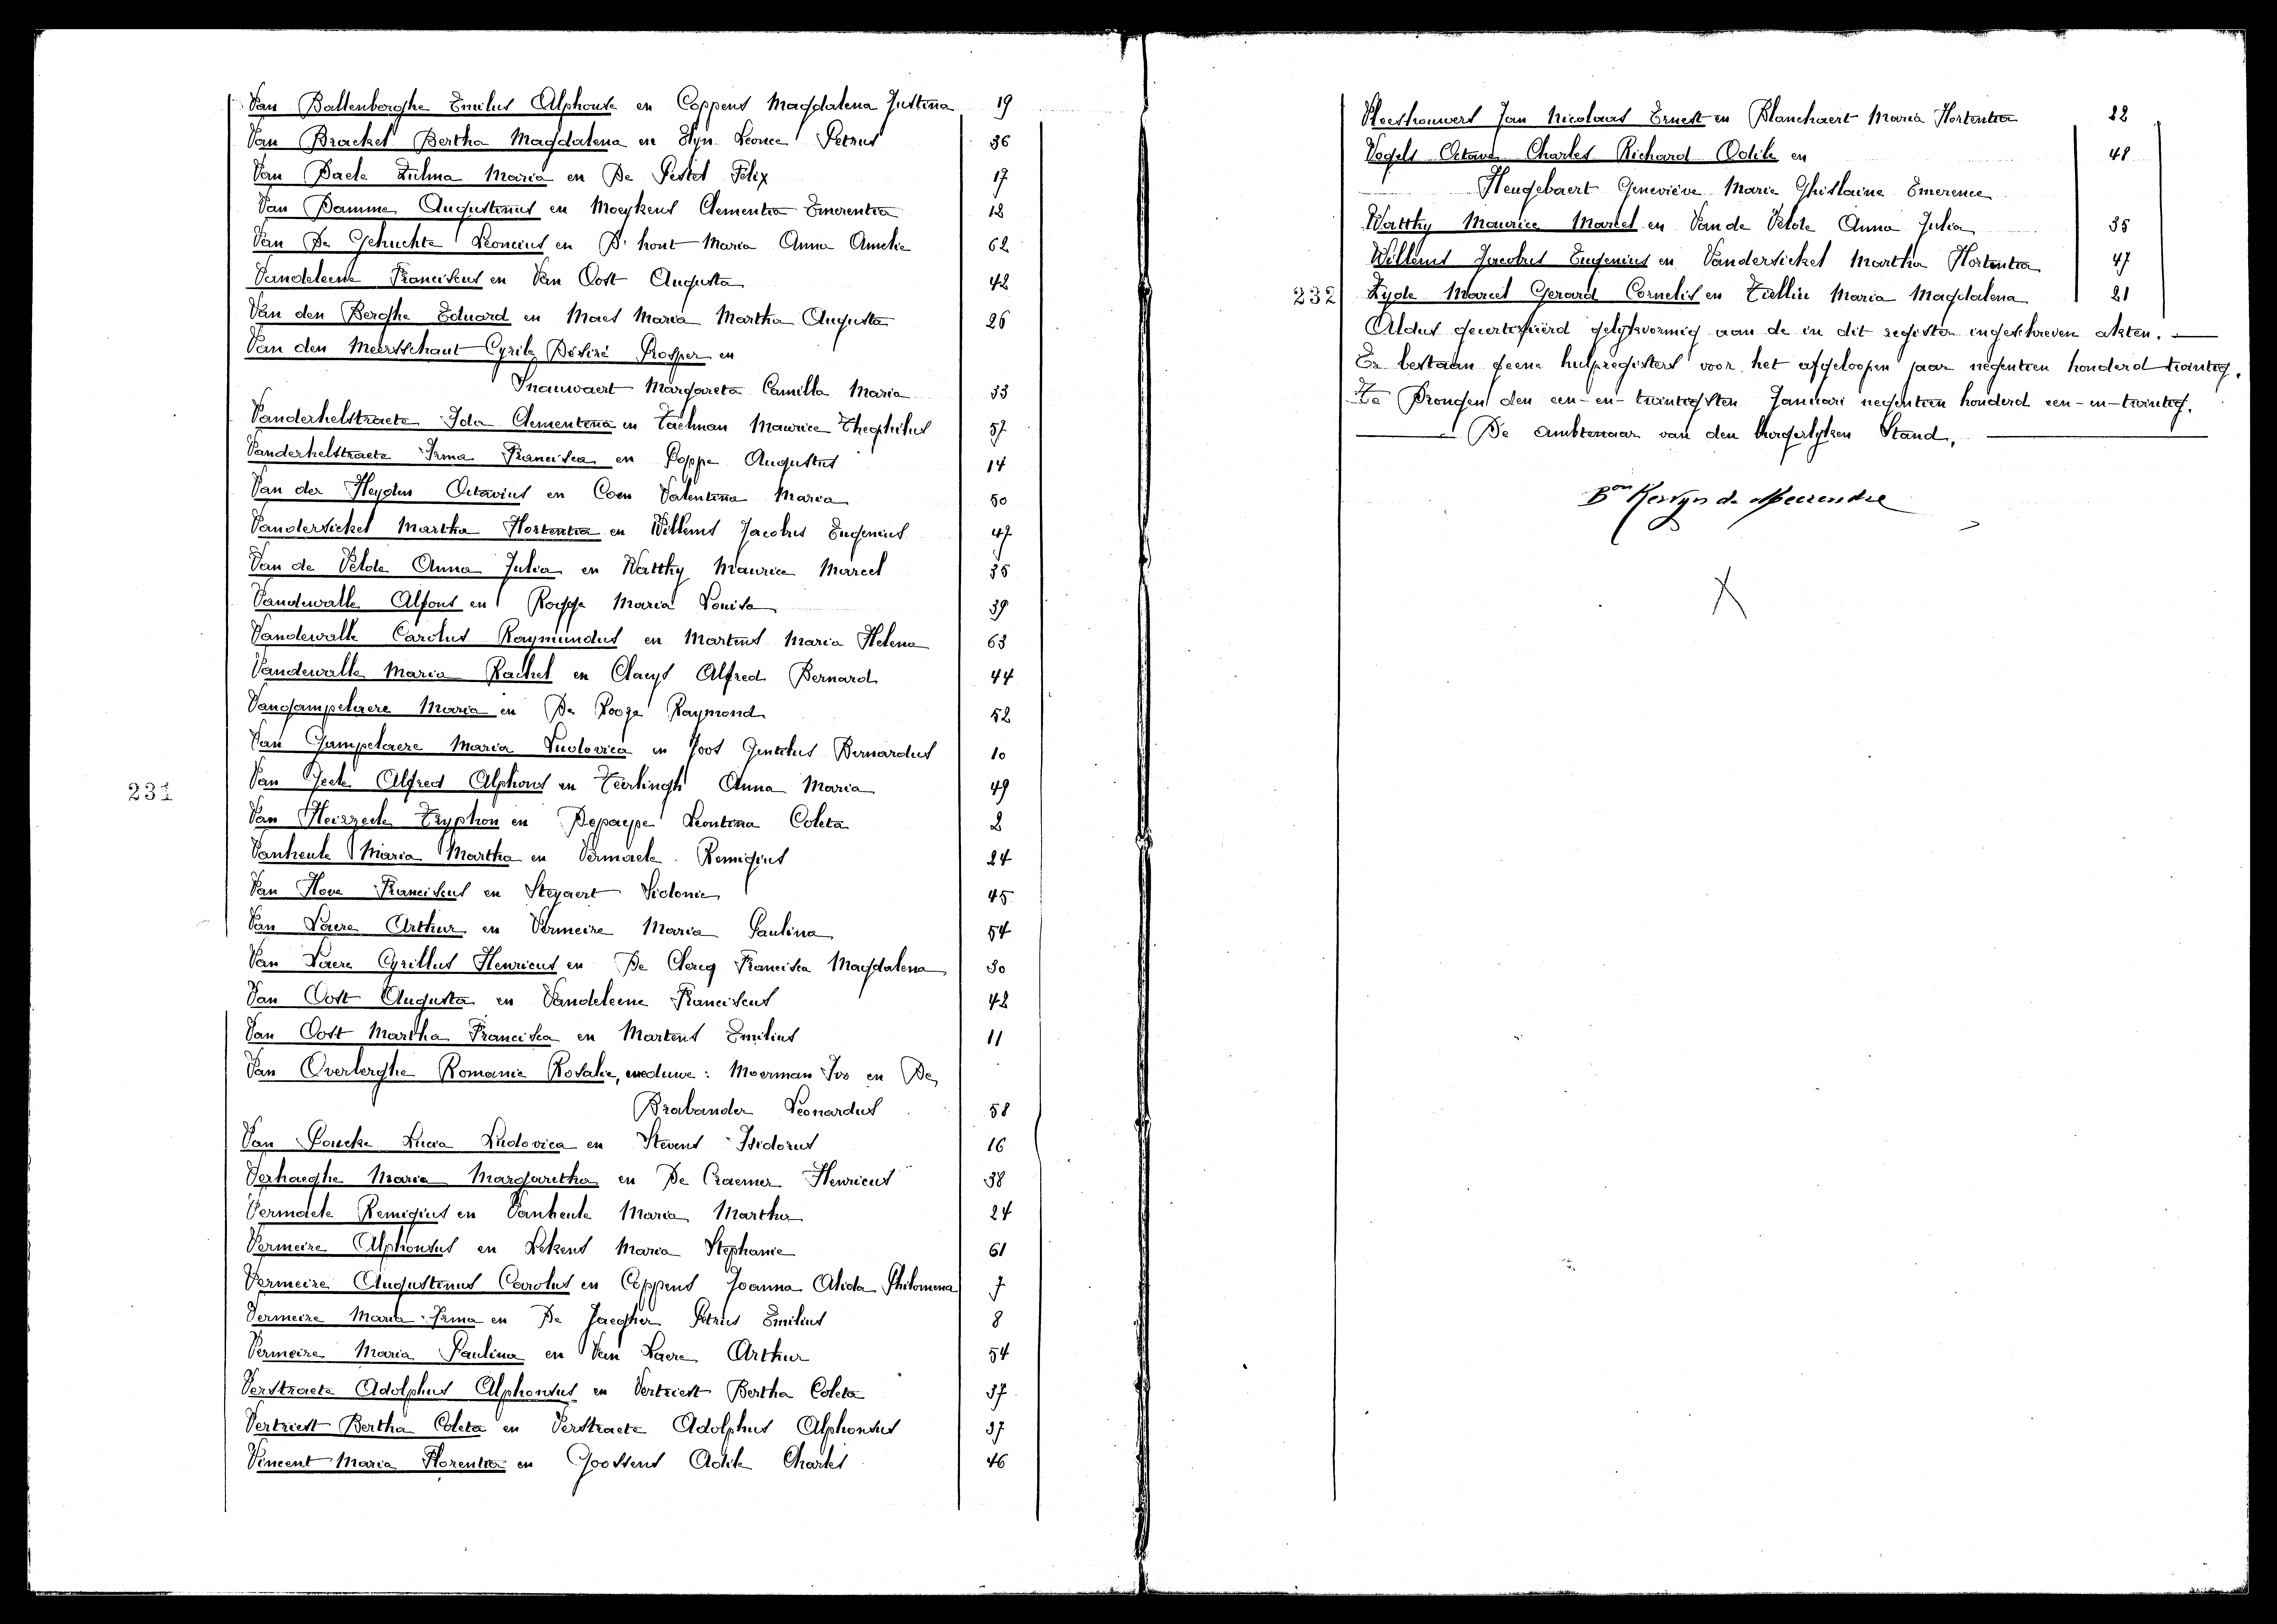 Van Ballenberghe Emilus Alphonse en Coppens Magdalena Justina 19
Van Brackel Bertha Magdalena en Leonce Petrus 36
Van Daele Zulma Maria en De Pestel Felix 17
Van Damme Augustinus en Moeykens Clementia Emerentia 12
Van De Gehuchte Leoncius en D'hont Maria Anna Amelie 62
Vandeleene Franciscus en Van Oost Augusta 42
Van den Berghe Eduard en Maes Maria Martha Augusta 26
Van den Meersschaut Cyrile Désiré Prosper en
Inauwaert Margareta Camilla Maria 33
Vanderhelstraete Ida Clementina en Taelman Maurice Theophilus 57
Vanderhelstraete Irma Francisca en Poppe Augustus 14
Van der Heyden Octavius en Coen Valentina Maria 50
Vandersickel Martha Hortentia en Willems Jacobus Eugenius 47
Van de Velde Anna Julia en Watthy Maurice Marcel 35
Vandewalle Alfons en Rogge Maria Louisa 39
Vandewalle Carolus Raymundus en Martens Maria Helena 63
Vandewalle Maria Rachel en Claeys Alfred Bernard 44
Vangampelaere Maria en De Rooze Raymond 52
Van Gampelaere Maria Ludovica en Joos Gentilus Bernardus 10
231
Van Geele Alfred Alphons en Teirlinck Anna Maria 49
Van Heirzeele Tryphon en Depaepe Leontina Coleta 2
Vanheule Maria Martha en Vermaele Remigius 24
Van Hove Franciscus en Steyaert Sidonie 45
Van Laere Arthur en Vermeire Maria Paulina 54
Van Laere Cyrillus Henricus en De Clercq Francisca Magdalena 30
Van Oost Augusta en Vandeleene Franciscus 42
Van Oost Martha Francisca en Martens Emilius 11
Van Overberghe Romanie Rosalie, weduwe: Moerman Ivo en De
Brabander Leonardus 58
Van Poucke Lucia Ludovica en Stevens Isidorus 16
Verhaeghe Maria Margaretha en De Craemer Henricus 38
Vermaele Remigius en Vanheule Maria Martha 24
Vermeire Alphonsus en Lekens Maria Stephanie 61
Vermeire Augustinus Carolus en Coppens Joanna Alida Philomena 7
Vermeire Maria Irma en De Jaegher Petrus Emilius 8
Vermeire Maria Paulina en Van Laere Arthur 54
Verstraete Adolphus Alphonsus en Vertriest Bertha Coleta 37
Vertriest Bertha Coleta en Verstraete Adolphus Alphonsus 37
Vincent Maria Florentia en Goossens Achile Charles 46
Vleeshouwers Jan Nicolaas Ernest en Blanchaert Maria Hortentia 22
Vogels Octave Charles Richard Odile en 48
Heugebaert Geneviève Marie Ghislaine Emerence
Watthy Maurice Marcel en Van de Velde Anna Julia 35
Willems Jacobus Eugenius en Vandersickel Martha Hortentia 47
232
Zyde Marcel Gerard Cornelis en Maria Magdalena 21
Aldus gecertifieerd gelykvormig aan de in dit register ingeschreven akten.
Er bestaan geene hulpregisters voor het afgeloopen jaar negentien honderd twintig.
Te Drongen den een-en-twintigsten Januari negentien honderd een-en-twintig.
De Ambtenaar van den burgerlyken Stand,
Bon Kervyn de Meerendre